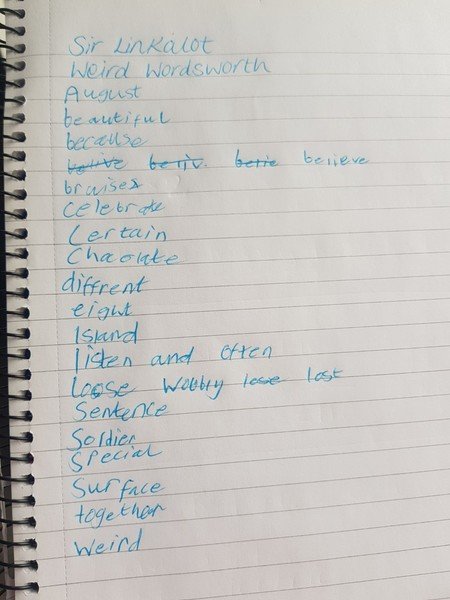 Sir Linkalot
Weird Wordsworth
August
beautiful
because
believe
bruises
celebrate
Certain
Chocolate
diffrent
eight
Island
listen and often
loose lose lost
Sentence
Soldier
Special
Surface
together
Weird